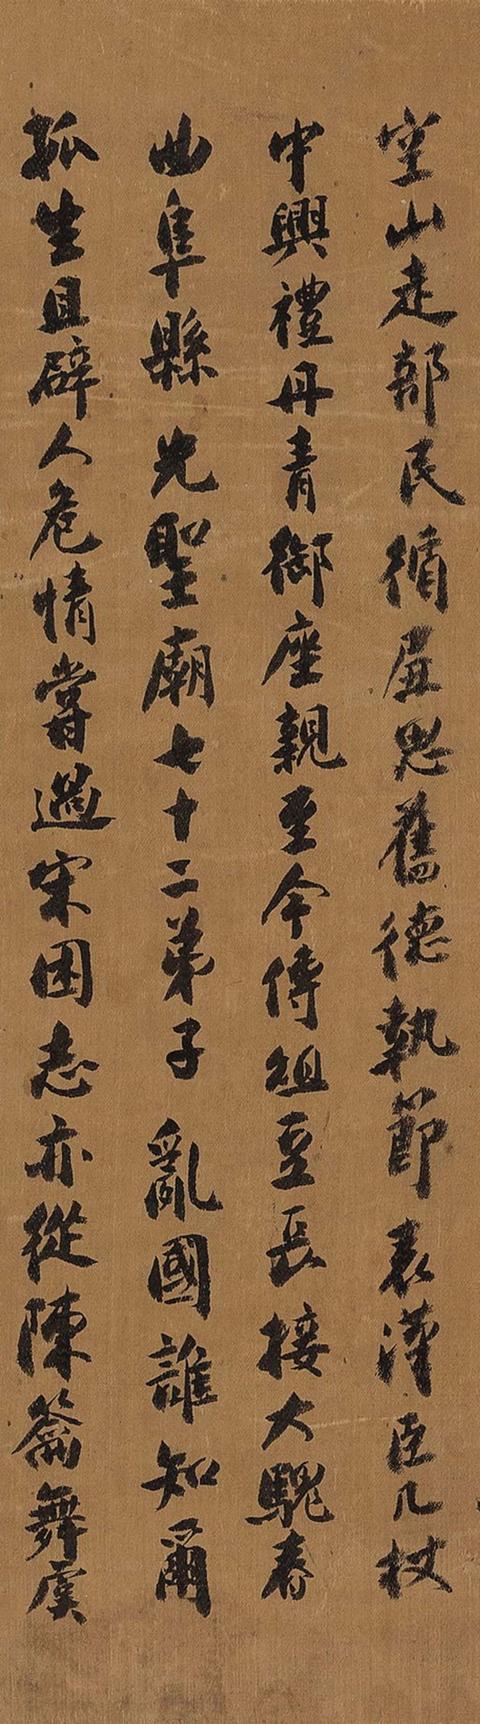 空山走部民循屈思舊德執節表漢臣几杖
中興禮丹青御座親至今傳俎豆長接大騩春
曲阜縣先聖廟七十二弟子亂國誰知爾
孤生且辟人危情嘗過宋困志亦從陳籥舞虞